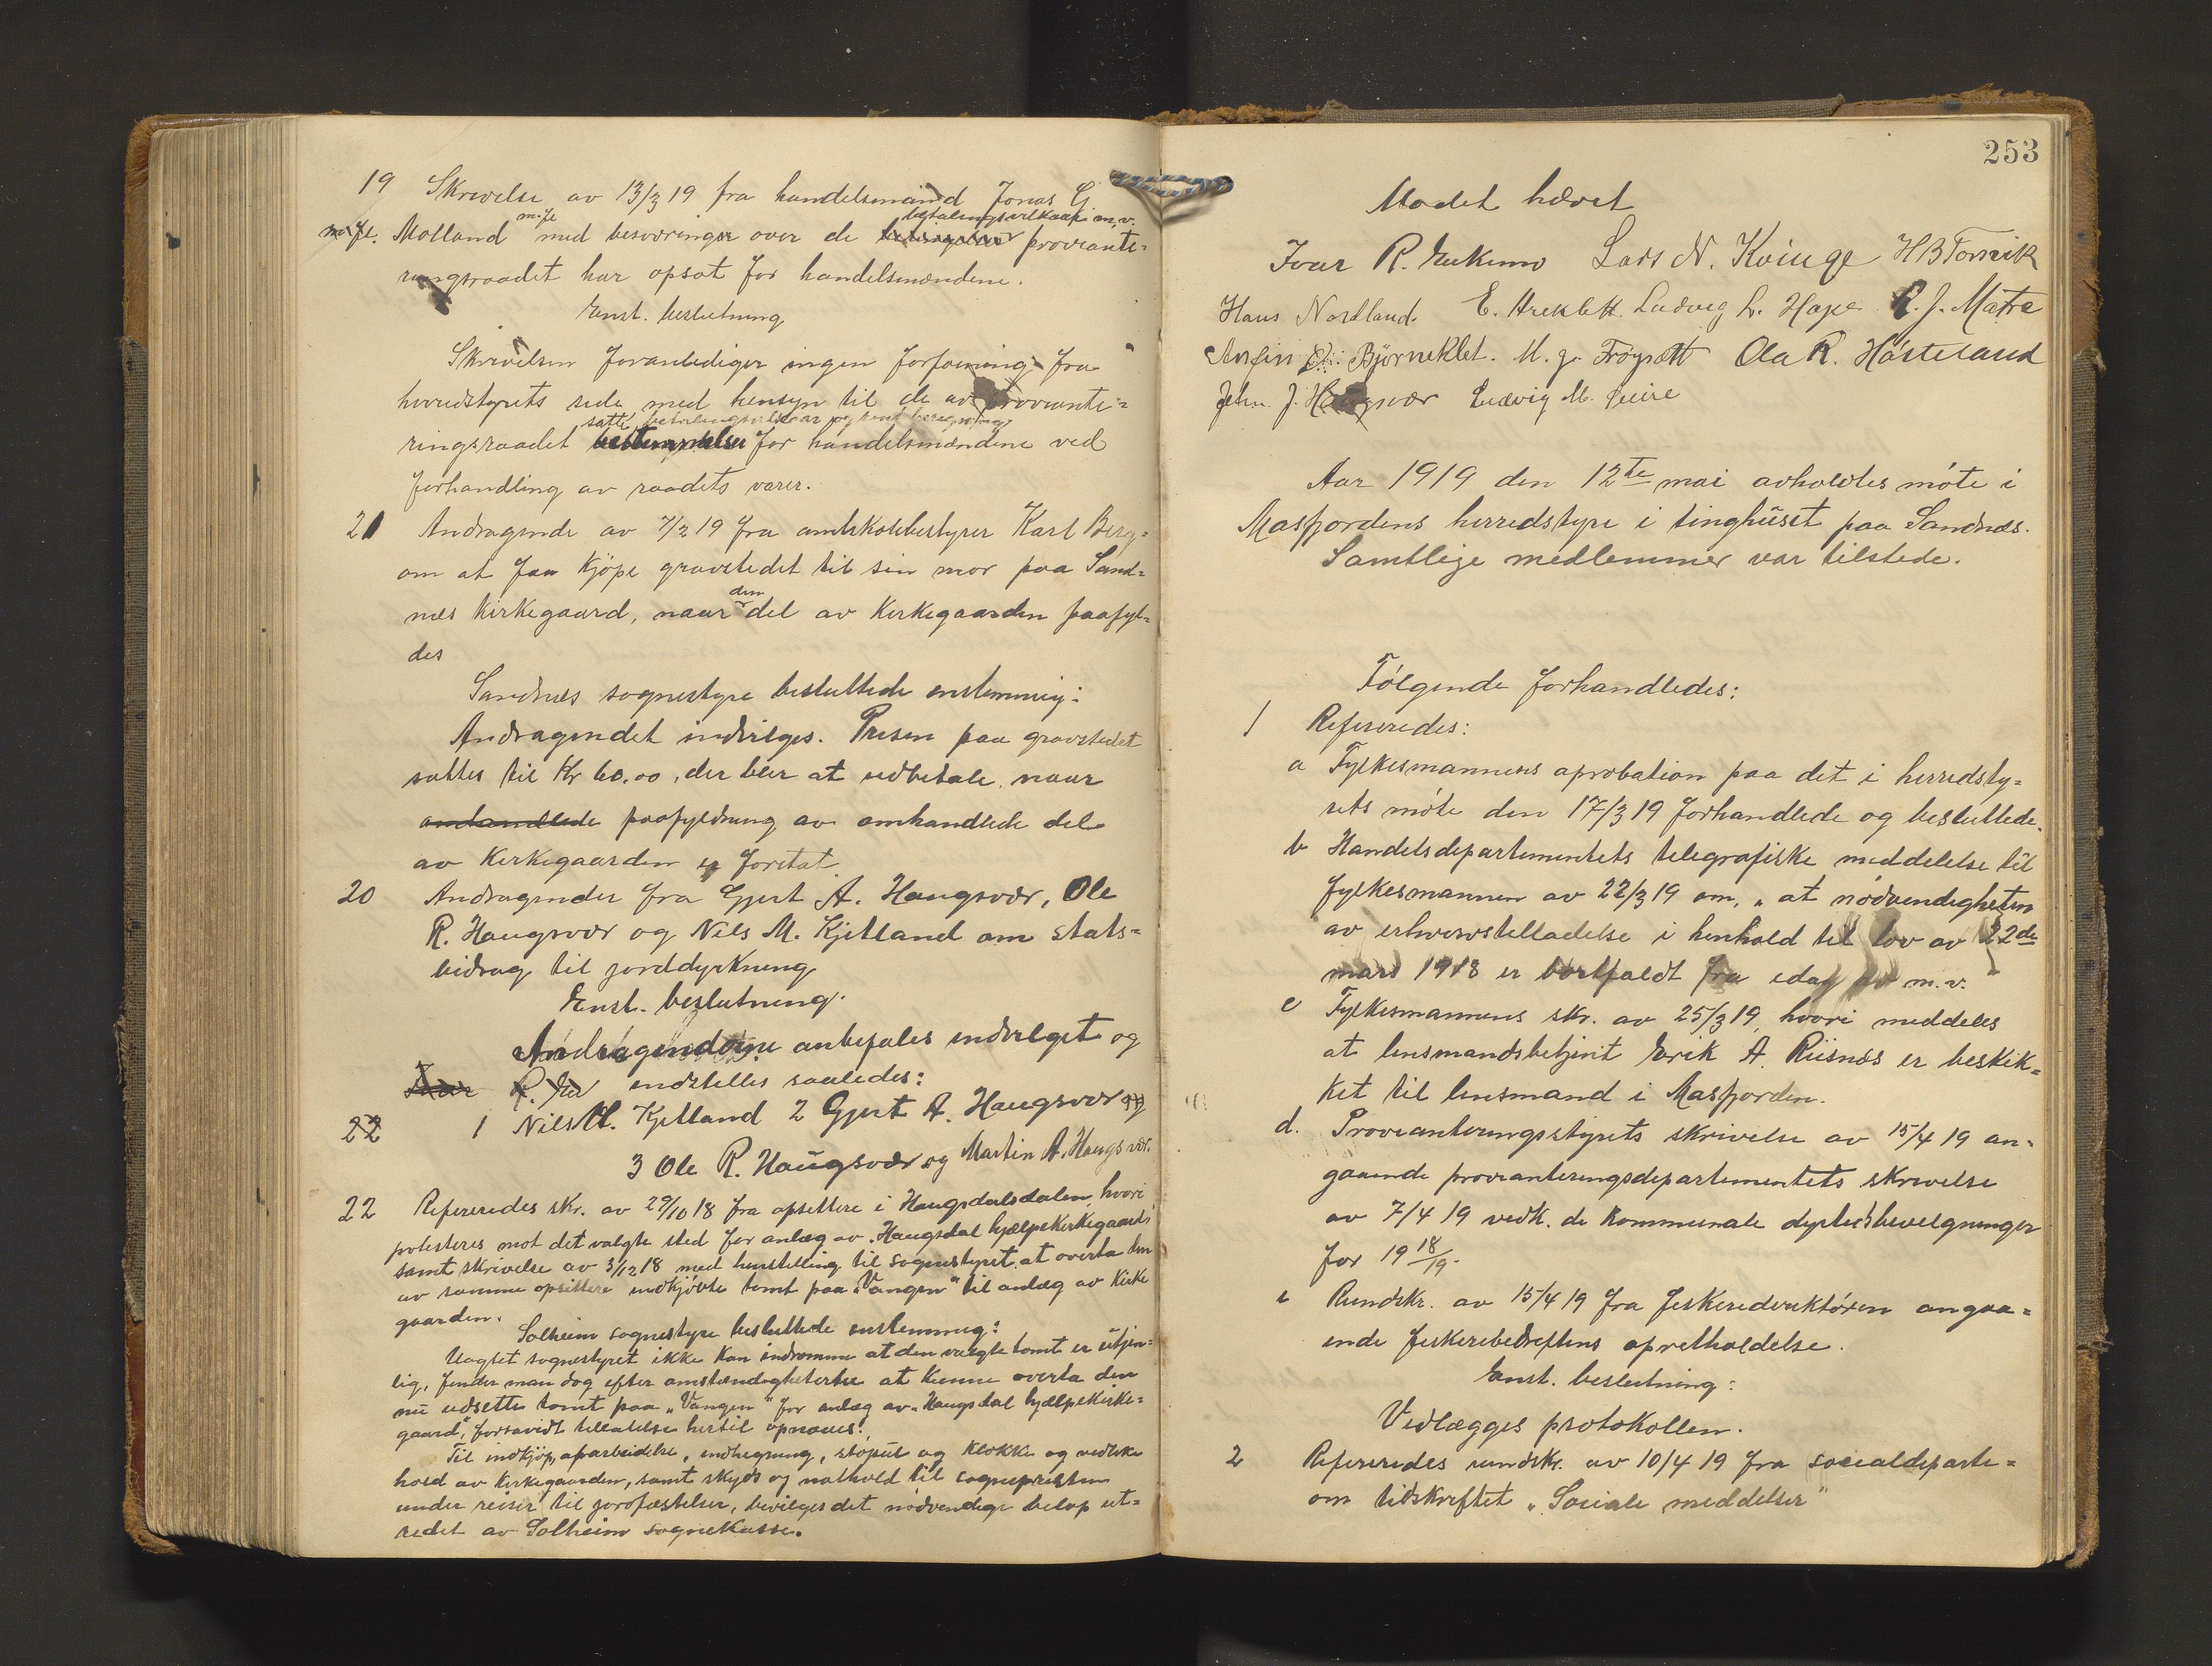 19 Skrivelse av 13/3 19 fra handelsmand Jonas G.
m. fl. Molland m. fl. med besværinger over de betalingsvilkaar m.v. proviante=
ringsraadet har opsat for handelsmændene.
Enst. beslutning
Skrivelsen foranlediger ingen forføining fra
herredstyrets side med hensyn til de av proviante=
ringsraadet satte betalingsvilkaar og for handelsmændene ved
forhandling av raadets varer.
21 Andragende av 7/2 19 fra amtskolebestyrer Karl Berg=
om at faa kjöpe gravstedet til sin mor paa Sand=
nes kirkegaard, naar den del av kirkegaarden paafyl=
des
Sandnes sognestyre besluttede enstemmig:
Andragendet indvilges. Prisen paa gravstedet
sættes til Kr 60.00, der blir at udbetale naar
omhandlede paafyldning av omhandlede del
av kirkegaarden er foretat.
20 Andragender fra Gjert A. Haugsvær, Ole
R. Haugsvær og Nils M. Kjetland om stats=
bidrag til jorddyrkning
Enst. beslutning.
Andragenderne anbefales indvilget og
indstilles saaledes:
22 1 Nils M. Kjetland 2 Gjert A. Haugsvær og
3 Ole R. Haugsvær og Martin A. Haugsvær.
22 Refereredes skr. av 29/10 18 fra opsittere i Haugsdalsdalen, hvori
protesteres mot det valgte sted for anlæg av "Haugsdal hjælpekirkegaard"
samt skrivelse av 3/12 18 med henstilling til sognestyret at overta den
av samme opsittere indkjöbte tomt paa "Vangen" til anlæg av kirke
gaarden.
Solheim sognestyre besluttede enstemmig:
Uagtet sognestyret ikke kan indrömme at den valgte tomt er utjen=
lig, finder man dog efter omstændigheterne at kunne overta den
nu udsette tomt paa "Vangen" for anlæg av "Haugsdal hjælpekirke=
gaard", forsavidt tilladelse hertil opnaaes.
Til indkjöp, oparbeidelse, indhegning, stöpul og klokke og vedlike
hold av kirkegaarden, samt skyds og nathold til sognepresten
under reiser til jordfæstelser, bevilges det nödvendige belöp ut=
redet av Solheim sognekasse.
253
Mödet hævet
Ivar R. Lars N. Kvinge H B Torsvik
Hans Nordland. E. Ludvig L. Hope R. J. Matre
Ansfin Björneklet. M. g. Fröysett Ola R. Hosteland
John J. Haugsvær Ludvig M.
Aar 1919 den 12te mai avholdtes möte i
Masfjordens herredstyre i tinghuset paa Sandnes.
Samtlige medlemmer var tilstede.
Fölgende forhandledes:
1 Refereredes:
a Fylkesmannens aprobation paa det i herredsty=
rets möte den 17/3 19 forhandlede og besluttede.
b Handelsdepartementets telegrafiske meddelelse til
fylkesmannen av 22/3 19 om, "at nödvendigheten
av erhvervstilladelse i henhold til lov av 22de
mars 1918 er bortfaldt fra idag av m.v."
c Fylkesmannens skr. av 25/3 19, hvori meddeles
at lensmandsbetjent Erik A. Riisnes er beskik=
ket til lensmand i Masfjorden.
d. Provianteringsstyrets skrivelse av 15/4 19 an=
gaaende provianteringsdepartementets skrivelse
av 7/4 19 vedk. de kommunale dyrtidsbevilgninger
for 1918/19.
e Rundskr. av 15/4 19 fra fiskeridirektören angaa=
ende fiskeribedriftens opretholdelse.
Enst. beslutning:
Vedlægges protokollen.
2 Refereredes rundskr. av 10/4 19 fra socialdeparte=
om tidskriftet "Sociale meddelser"